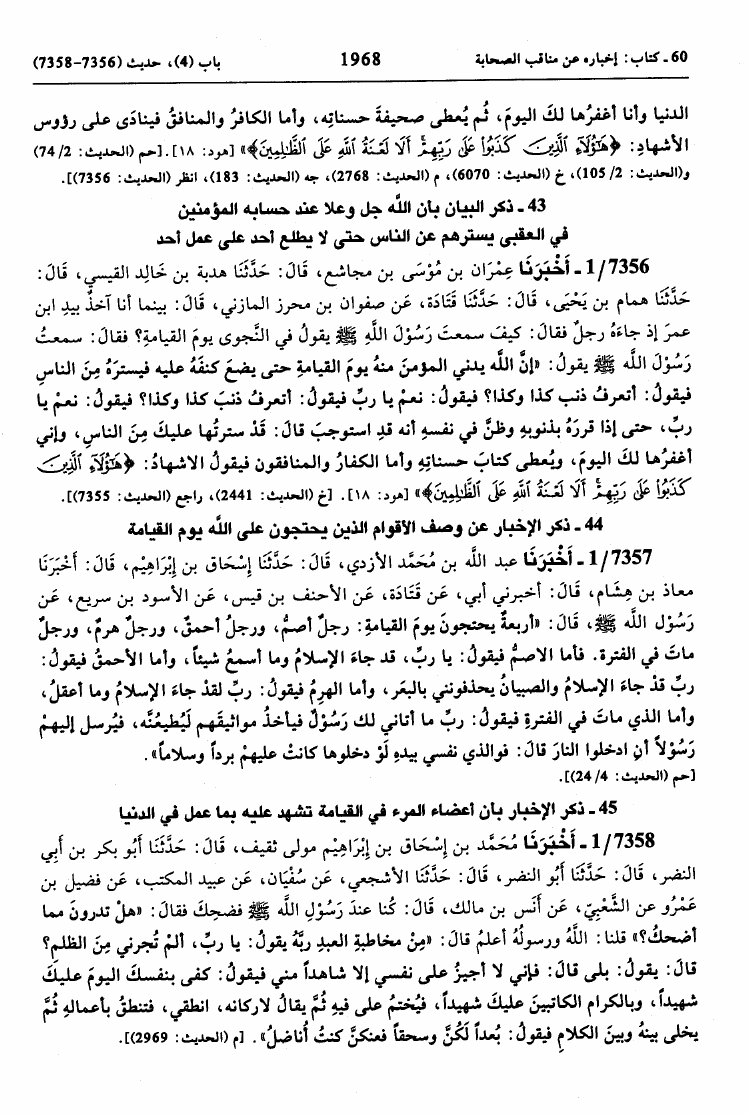 60 ـ كتاب: إخباره عن مناقب الصحابة 1968 باب (4)، حديث (7356-7358)
الدنيا وأنا أغفرُها لكَ اليومَ، ثُم يُعطى صحيفةَ حسناتِه، وأما الكافرُ والمنافقُ فينادَى على رؤوس
الأشهادِ: ﴿هَٰٓؤُلَآءِ ٱلَّذِينَ كَذَبُوا۟ عَلَىٰ رَبِّهِمْ ۚ أَلَا لَعْنَةُ ٱللَّهِ عَلَى ٱلظَّٰلِمِينَ﴾» [هود: ١٨]. [حم (الحديث: 2/ 74)
و(الحديث: 2/ 105)، خ (الحديث: 6070)، م (الحديث: 2768)، جه (الحديث: 183)، انظر (الحديث: 7356)].
43 ـ ذكر البيان بأن الله جل وعلا عند حسابه المؤمنين
في العقبى يسترهم عن الناس حتى لا يطلع أحد على عمل أحد
1/7356 ـ أَخْبَرَنَا عِمْرَان بن مُوْسَى بن مجاشع، قَالَ: حَدَّثَنَا هدبة بن خَالِد القيسي، قَالَ:
حَدَّثَنَا همام بن يَحْيَى، قَالَ: حَدَّثَنَا قَتَادَة، عَن صفوان بن محرز المازني، قَالَ: بينما أنا آخذٌ بيدِ ابن
عمرَ إذ جاءَهُ رجلٌ فقالَ: كيفَ سمعتَ رَسُوْلَ اللهِ ﷺ يقولُ في النَّجوى يومَ القيامةِ؟ فقالَ: سمعتُ
رَسُوْلَ الله ﷺ يقولُ: «إنَّ الله يدني المؤمنَ منهُ يومَ القيامةِ حتى يضعَ كنفَهُ عليه فيسترَهُ مِنَ الناسِ
فيقولُ: أتعرفُ ذنب كذا وكذا؟ فيقولُ: نعمْ يا ربِّ فيقولُ: أتعرفُ ذنبَ كذا وكذا؟ فيقولُ: نعمْ يا
ربِّ، حتى إذا قررَهُ بذنوبهِ وظنَّ في نفسهِ أنه قدِ استوجبَ قالَ: قَدْ سترتُها عليكَ مِنَ الناسِ، وإني
أغفرُها لكَ اليومَ، ويُعطى كتابَ حسناتهِ وأما الكفارُ والمنافقون فيقولُ الأشهادُ: ﴿هَٰٓؤُلَآءِ ٱلَّذِينَ
كَذَبُوا۟ عَلَىٰ رَبِّهِمْ ۚ أَلَا لَعْنَةُ ٱللَّهِ عَلَى ٱلظَّٰلِمِينَ﴾» [هود: ١٨]. [خ (الحديث: 2441)، راجع (الحديث: 7355)].
44 ـ ذكر الإخبار عن وصف الأقوام الذين يحتجون على الله يوم القيامة
1/7357 ـ أَخْبَرَنَا عبد الله بن مُحَمَّد الأزدي، قَالَ: حَدَّثَنَا إِسْحَاق بن إِبْرَاهِيْم، قَالَ: أَخْبَرَنَا
معاذ بن هِشَام، قَالَ: أخبرني أبي، عَن قَتَادَة، عَن الأحنف بن قيس، عَن الأسود بن سريع، عَن
رَسُوْل الله ﷺ، قَالَ: «أربعةٌ يحتجونَ يومَ القيامةِ: رجلٌ أصمُّ، ورجلٌ أحمقٌ، ورجلٌ هرمٌ، ورجلٌ
ماتَ في الفترة. فأما الاصمُّ فيقولُ: يا ربِّ، قد جاءَ الإسلامُ وما أسمعُ شيئاً، وأما الأحمقُ فيقولُ:
ربِّ قدْ جاءَ الإسلامُ والصبيانُ يحذفونني بالبعَر، وأما الهرِمُ فيقولُ: ربِّ لقدْ جاءَ الإسلامُ وما أعقلُ،
وأما الذي ماتَ في الفترةِ فيقولُ: ربِّ ما أتاني لك رَسُوْلٌ فيأخذُ مواثيقَهم لَيُطيعُنَّه، فيُرسل إليهمْ
رَسُوْلاً أنِ ادخلوا النارَ قالَ: فوالذي نفسي بيدهِ لَوْ دخلوها كانتْ عليهمْ برداً وسلاماً».
[حم (الحديث: 4/ 24)].
45 ـ ذكر الإخبار بأن أعضاء المرء في القيامة تشهد عليه بما عمل في الدنيا
1/7358 ـ أَخْبَرَنَا مُحَمَّد بن إِسْحَاق بن إِبْرَاهِيْم مولى ثقيف، قَالَ: حَدَّثَنَا أَبُو بكر بن أَبِي
النضر، قَالَ: حَدَّثَنَا أَبُو النضر، قَالَ: حَدَّثَنَا الأشجعي، عَن سُفْيَان، عَن عبيد المكتب، عَن فضيل بن
عَمْرُو عن الشَّعْبِيِّ، عَن أَنَس بن مالك، قَالَ: كُنا عندَ رَسُوْلِ اللهِ ﷺ فضحِكَ فقالَ: «هلْ تدرونَ مما
أضحكُ؟» قلنا: اللَّهُ ورسولُهُ أعلمُ قالَ: «مِنْ مخاطبةِ العبدِ ربَّهُ يقولُ: يا ربِّ، ألمْ تُجرني مِنَ الظلمِ؟
قالَ: يقولُ: بلى قالَ: فإني لا أجيزُ على نفسي إلا شاهداً مني فيقولُ: كفى بنفسكَ اليومَ عليكَ
شهيداً، وبالكرام الكاتبينَ عليكَ شهيداً، فيُختمُ على فيهِ ثُمَّ يقالُ لاركانه، انطقي، فتنطقُ بأعمالهِ ثُمَّ
يخلى بينهُ وبينَ الكلامِ فيقولُ: بُعداً لَكُنَّ وسحقاً فعنكنَّ كنتُ أُناضلُ». [م (الحديث: 2969)].